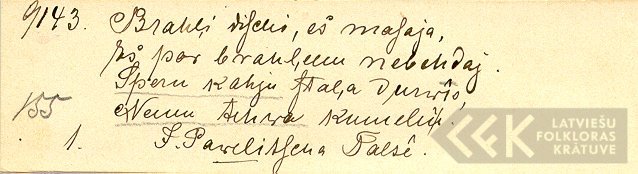 9143. Brahli dischi, es masaja,
Es par brahleem nebehdaj.
Speru kahju stala durwis,
155
Nemu tehwa kumeliņ.
1. J. Pawelitschna Talsē.
LATVIEŠU
FOLKLORAS
KRĀTUVE